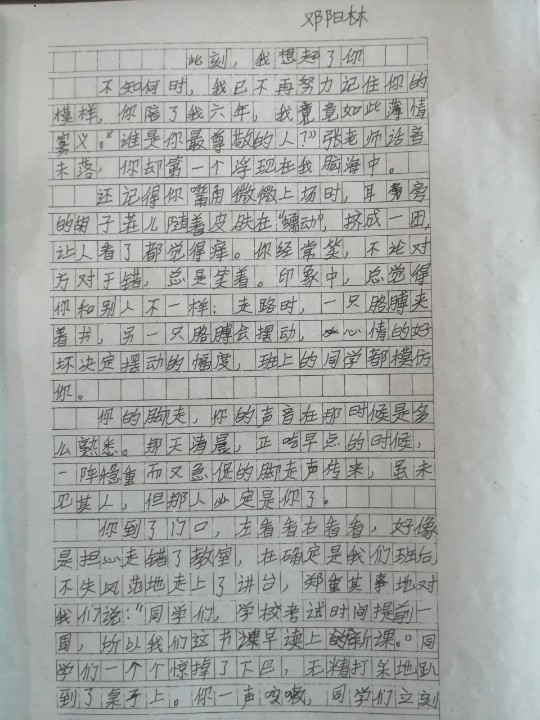 邓阳林
此刻，我想起了你
不知何时，我已不再努力记住你的
模样，你陪了我六年，我竟竟如此薄情
寡义。“谁是你最尊敬的人？”张老师话音
未落，你却第一个浮现在我脑海中。
还记得你嘴角微微上扬时，耳旁
的胡子茬儿随着皮肤在“蠕动”，挤成一团，
让人看了都觉得痒。你经常笑，不论对
方对于错，总是笑着。印象中，总觉得
你和别人不一样：走路时，一只胳膊夹
着书，另一只胳膊会摆动，心情的好
坏决定摆动的幅度，班上的同学都模仿
你。
你的脚走，你的声音在那时候是多
么熟悉。那天清晨，正吃早点的时候，
一阵稳重而又急促的脚走声传来，虽未
见其人，但那人必定是你了。
你到了门口，左看看右看看，好像
是担心走错了教室，在确定是我们班后，
不失风范地走上了讲台，郑重其事地对
我们说：“同学们，学校考试时间提前一
周，所以我们这节课早读上新课。”同
学们一个个惊掉了下巴，无精打采地趴
到了桌子上。你一声咳嗽，同学们立刻